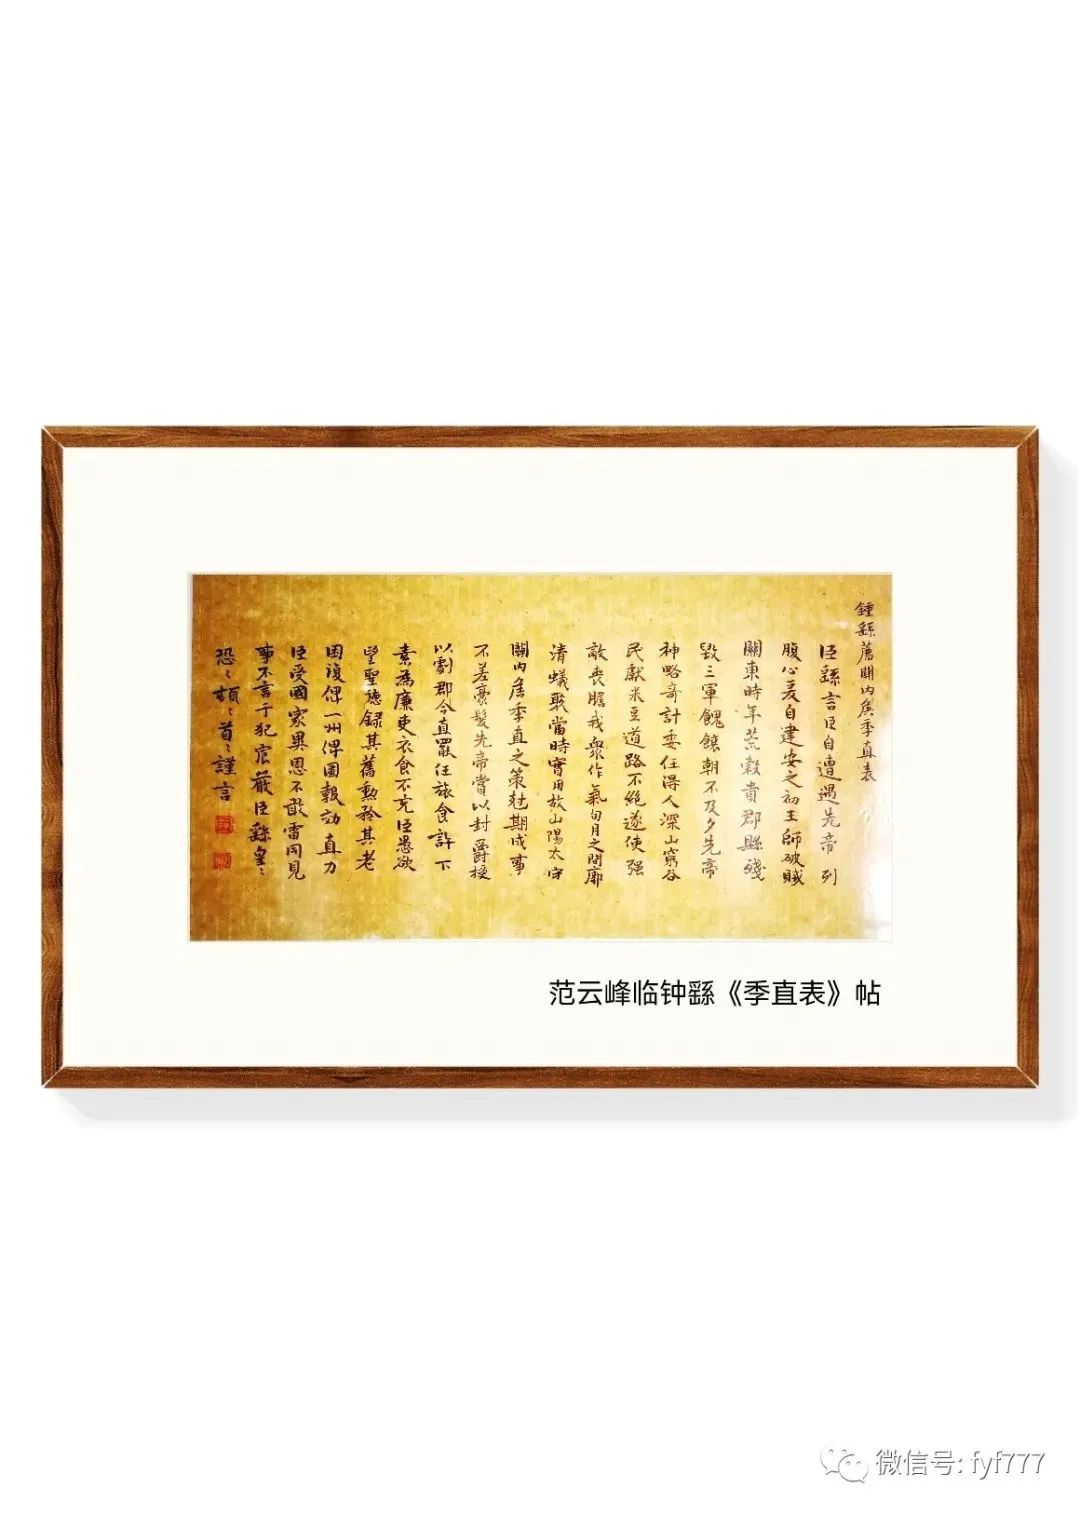 鍾繇薦關内矦季直表
臣繇言臣自遭遇先帝列
腹心爰自建安之初王師破賊
關東時年荒穀貴郡縣殘
毀三軍餽饟朝不及夕先帝
神略奇計委任得人深山窮谷
民獻米豆道路不絕遂使强
敵喪膽我衆作氣旬月之間廓
清蟻聚當時實用故山陽太守
關内矦季直之策尅期成事
不差豪髮先帝賞以封爵授
以劇郡今直罷任旅食許下
素爲廉吏衣食不充臣愚欲
望聖德錄其舊勳矜其老
困復俾一州俾圖報効直力
臣受國家異恩不敢雷同見
事不言干犯宸嚴臣繇皇〻
恐〻頓〻首〻謹言
范云峰临钟繇《季直表》帖
微信号: fyf777